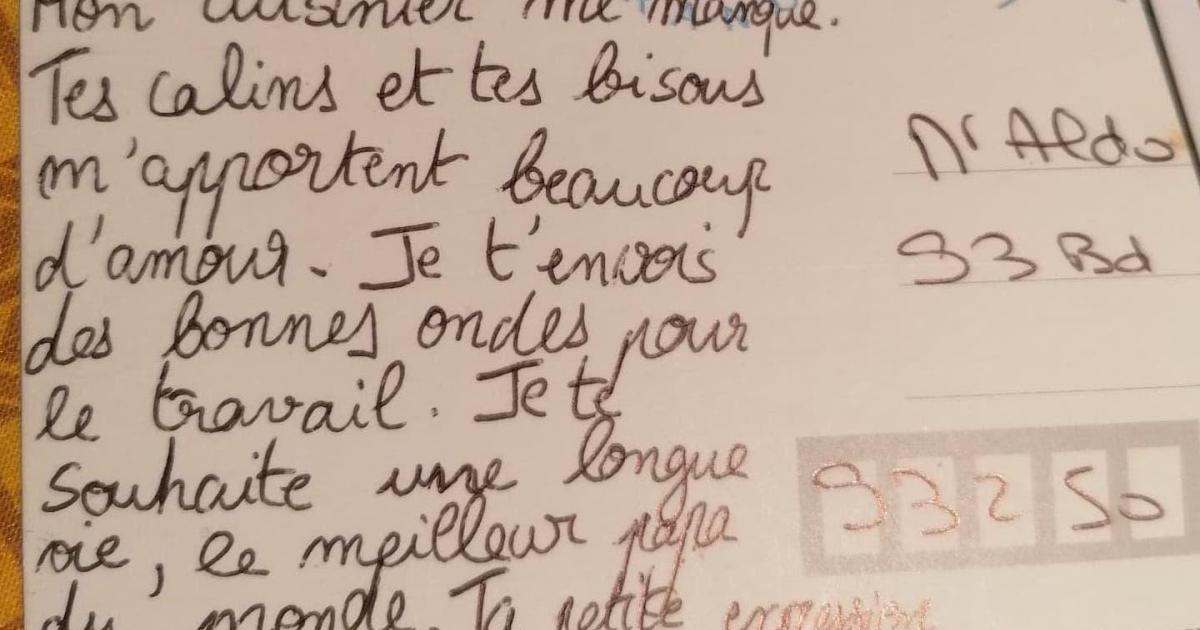 Mon cuisinier me manque.
Tes calins et tes bisous
m'apportent beaucoup
d'amour. Je t'envois
des bonnes ondes pour
le travail. Je te
souhaite une longue
vie, le meilleur papa
du monde. Ta petite
Mr Aldo
93 Bd
93250